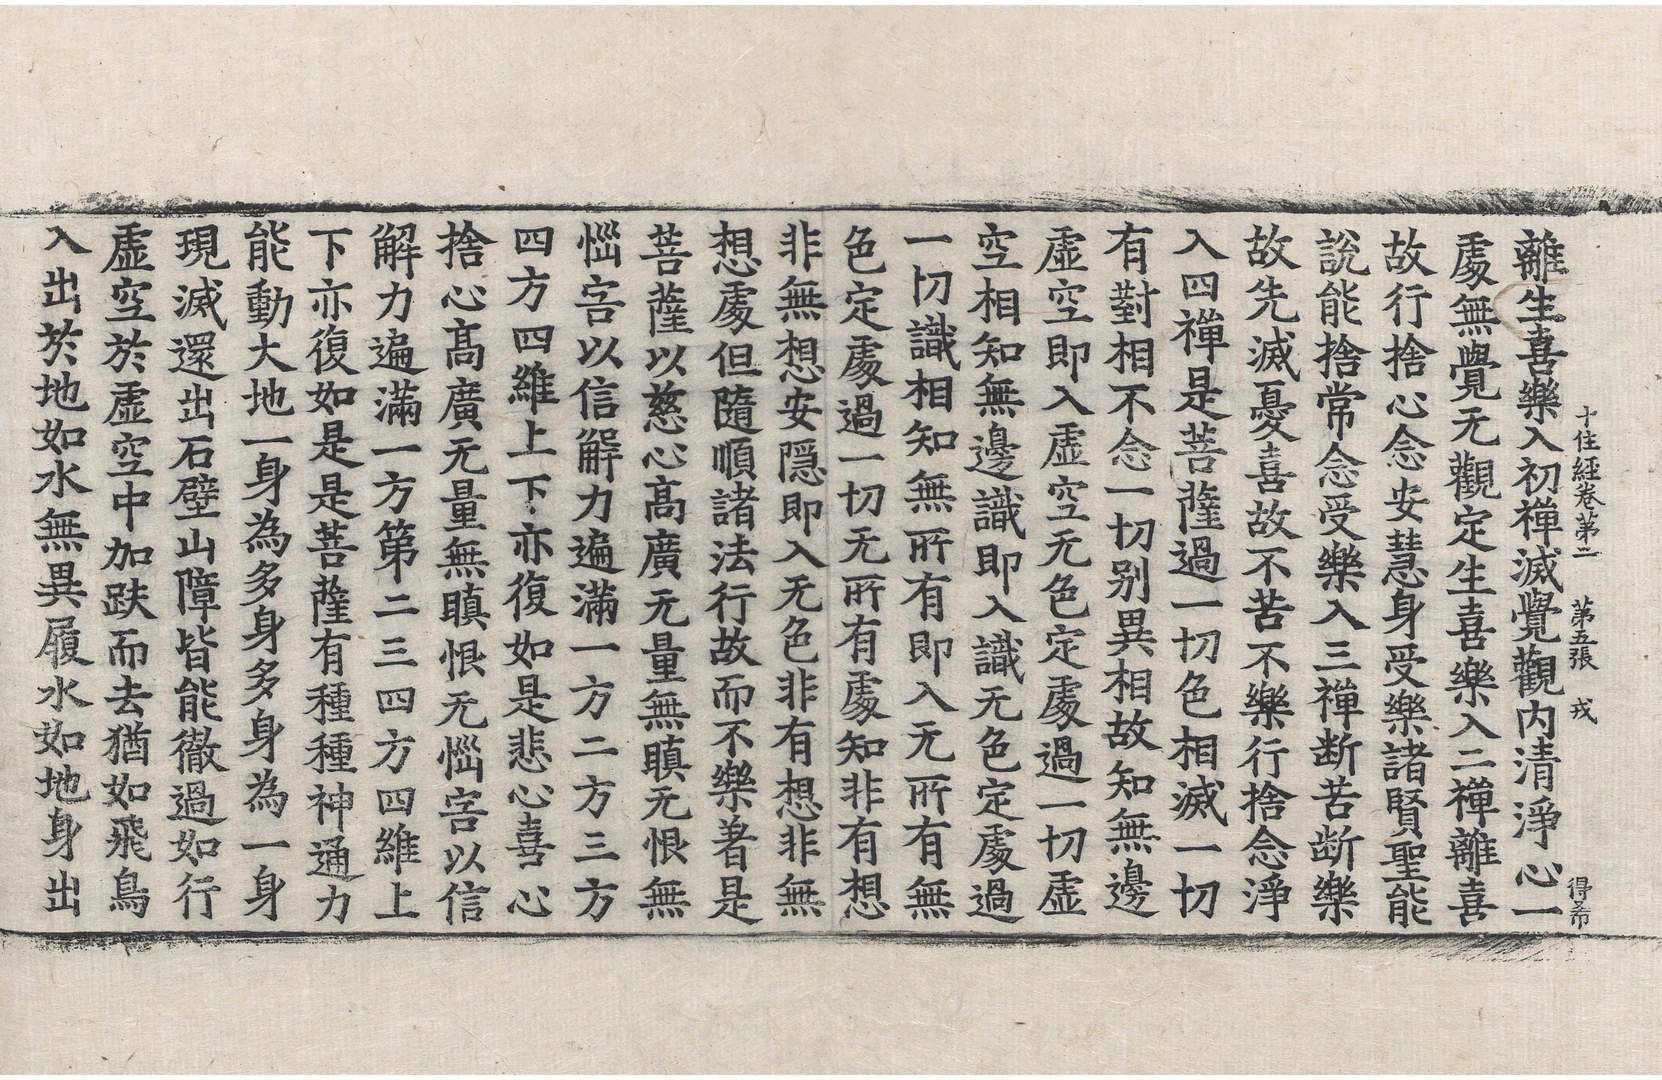 十住經卷第二 第五張 戎 得希
離生喜樂入初禪滅覺觀內清淨心一
處無覺无觀定生喜樂入二禪離喜
故行捨心念安慧身受樂諸賢聖能
說能捨常念受樂入三禪断苦断樂
故先滅憂喜故不苦不樂行捨念淨
入四禪是菩薩過一切色相滅一切
有對相不念一切别異相故知無邊
虛空即入虛空无色定處過一切虛
空相知無邊識即入識无色定處過
一切識相知無所有即入无所有無
色定處過一切无所有處知非有想
非無想安隱即入无色非有想非無
想處但隨順諸法行故而不樂著是
菩薩以慈心高廣无量無瞋无恨無
惱害以信解力遍滿一方二方三方
四方四維上下亦復如是悲心喜心
捨心高廣无量無瞋恨无惱害以信
解力遍滿一方第二三四方四維上
下亦復如是是菩薩有種種神通力
能動大地一身為多身多身為一身
現滅還出石壁山障皆能徹過如行
虛空於虛空中加趺而去猶如飛鳥
入出於地如水無異履水如地身出